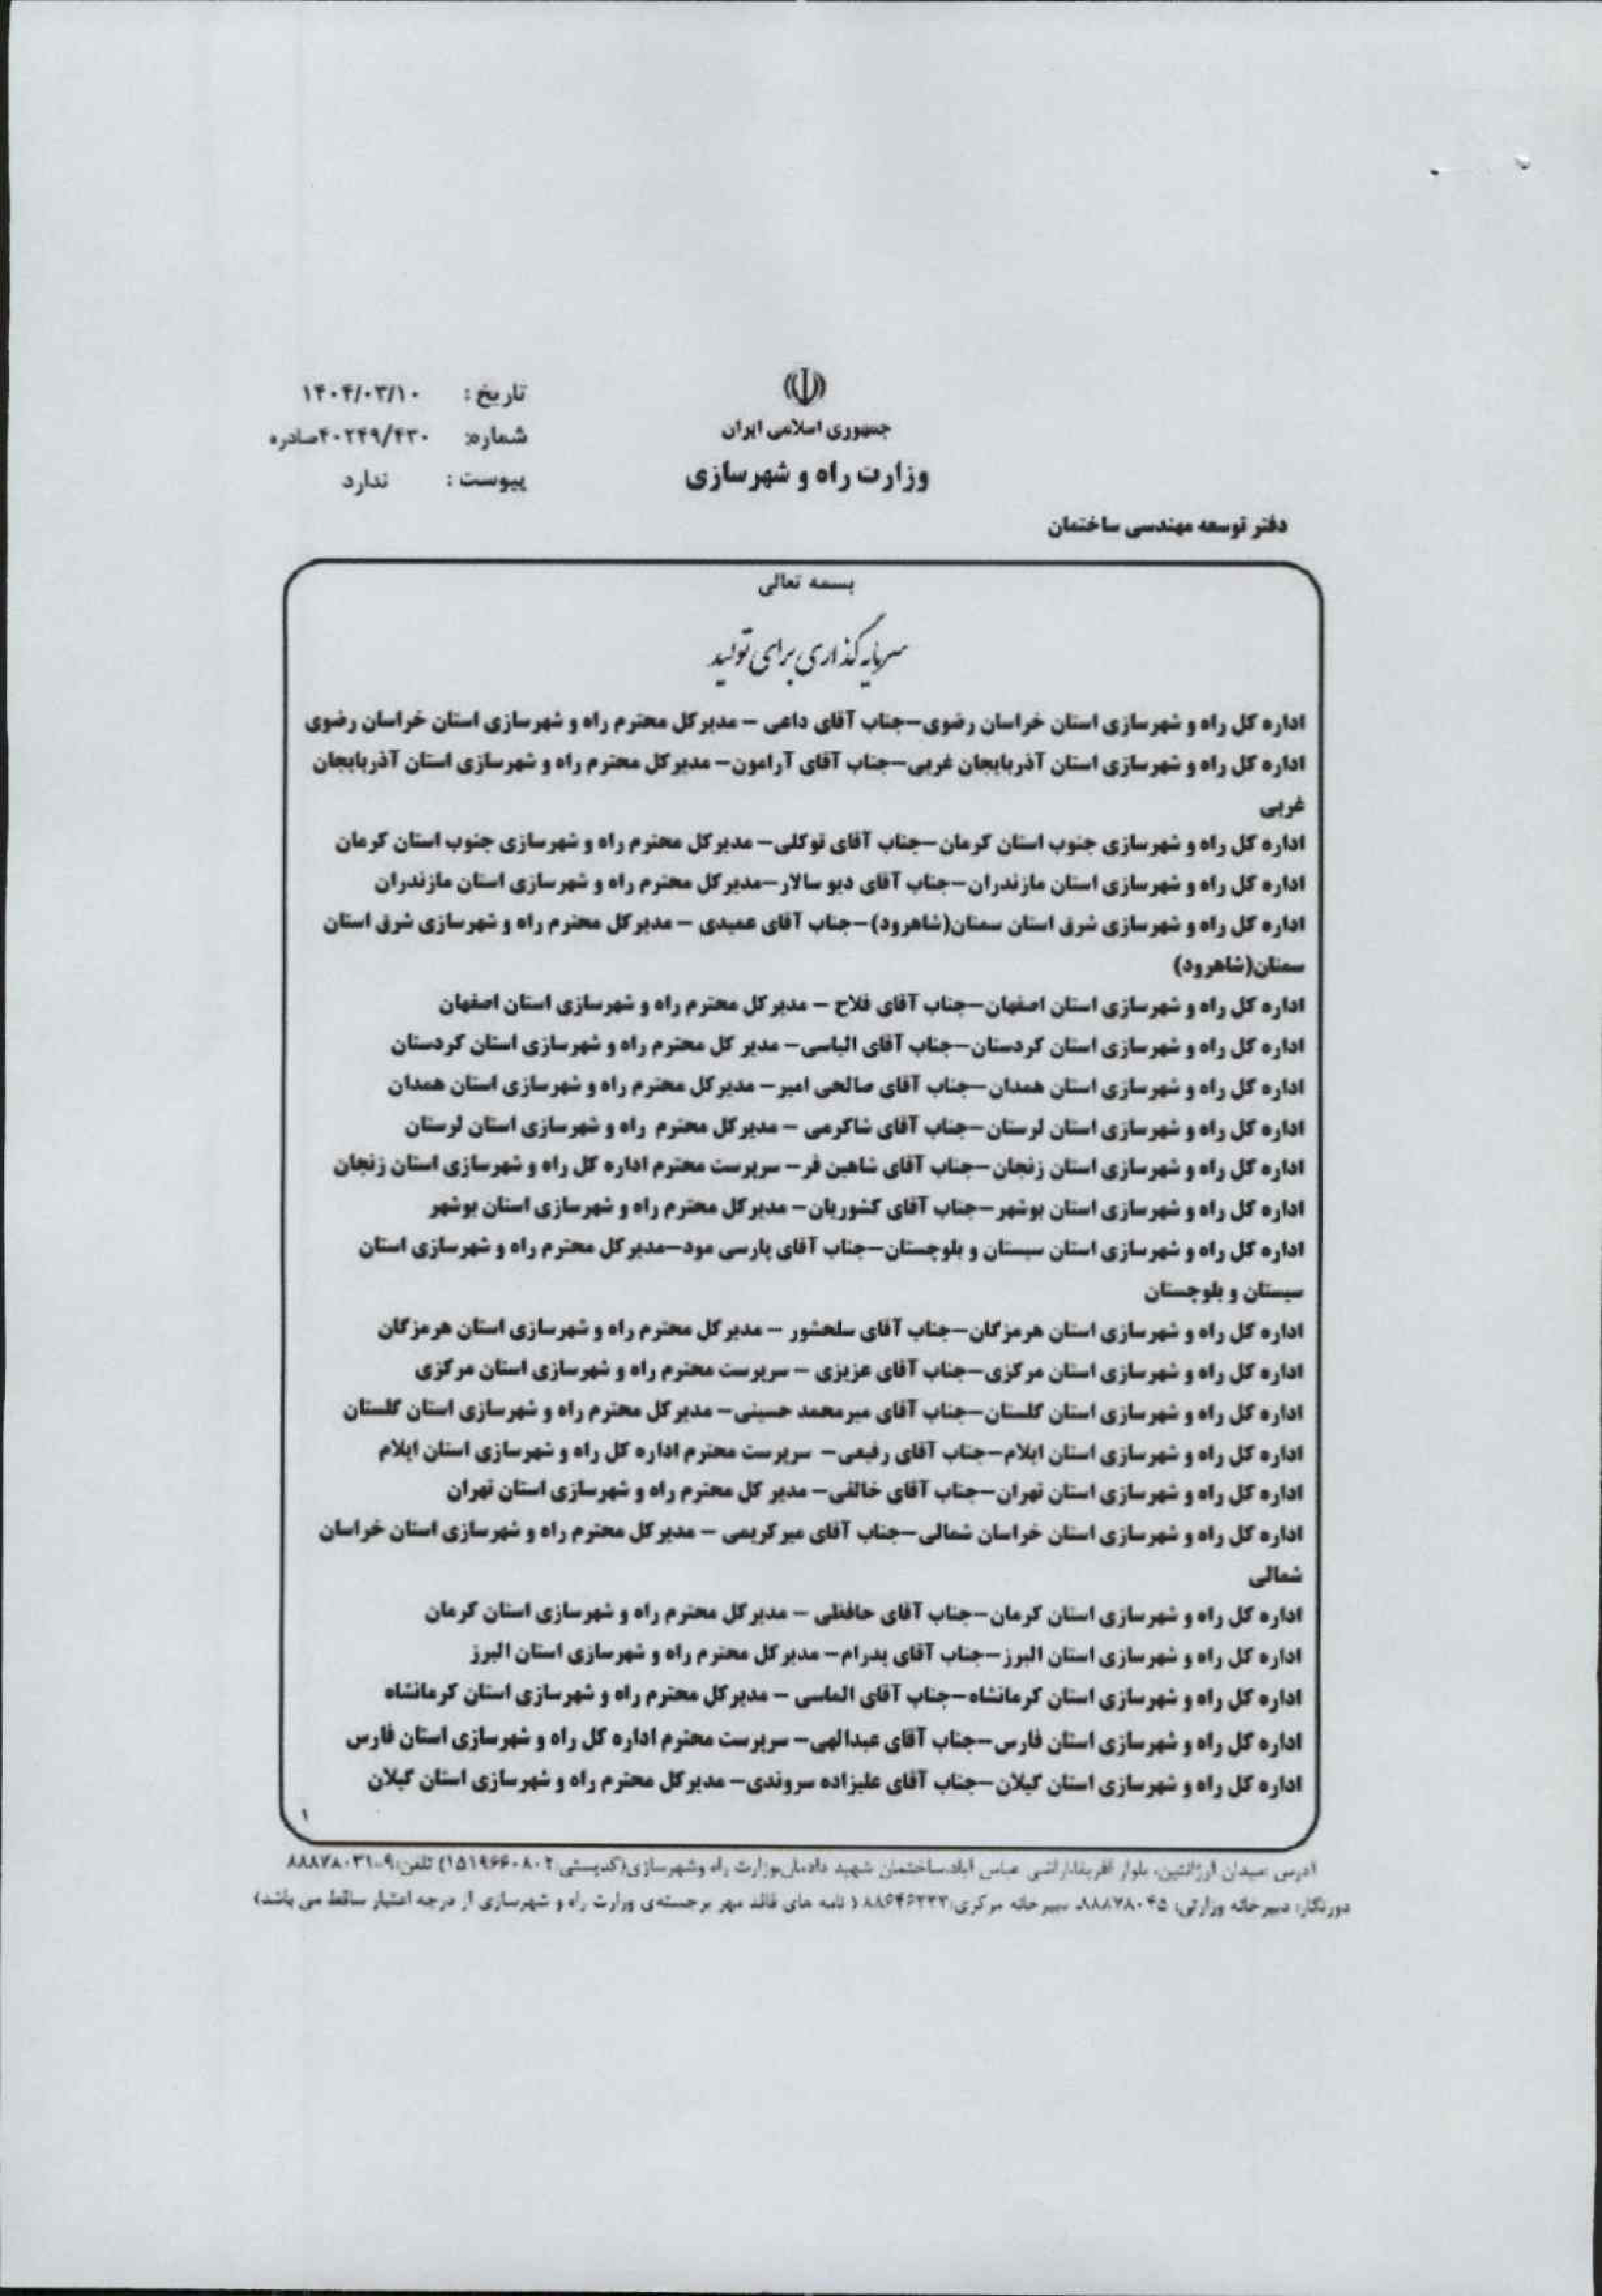 جمهوری اسلامی ایران
وزارت راه و شهرسازی
تاریخ : ۱۴۰۴/۰۳/۱۰
شماره: ۴۰۲۴۹/۴۳۰صادره
پیوست : ندارد
دفتر توسعه مهندسی ساختمان
بسمه تعالی
سرمایه گذاری برای تولید
اداره کل راه و شهرسازی استان خراسان رضوی-جناب آقای داعی - مدیرکل محترم راه و شهرسازی استان خراسان رضوی
اداره کل راه و شهرسازی استان آذربایجان غربی-جناب آقای آرامون- مدیرکل محترم راه و شهرسازی استان آذربایجان
غربی
اداره کل راه و شهرسازی جنوب استان کرمان-جناب آقای توکلی- مدیرکل محترم راه و شهرسازی جنوب استان کرمان
اداره کل راه و شهرسازی استان مازندران-جناب آقای دیو سالار-مدیرکل محترم راه و شهرسازی استان مازندران
اداره کل راه و شهرسازی شرق استان سمنان(شاهرود)-جناب آقای عمیدی - مدیرکل محترم راه و شهرسازی شرق استان
سمنان(شاهرود)
اداره کل راه و شهرسازی استان اصفهان-جناب آقای فلاح - مدیرکل محترم راه و شهرسازی استان اصفهان
اداره کل راه و شهرسازی استان کردستان-جناب آقای الیاسی- مدیر کل محترم راه و شهرسازی استان کردستان
اداره کل راه و شهرسازی استان همدان-جناب آقای صالحی امیر- مدیرکل محترم راه و شهرسازی استان همدان
اداره کل راه و شهرسازی استان لرستان-جناب آقای شاکرمی - مدیرکل محترم راه و شهرسازی استان لرستان
اداره کل راه و شهرسازی استان زنجان-جناب آقای شاهین فر- سرپرست محترم اداره کل راه و شهرسازی استان زنجان
اداره کل راه و شهرسازی استان بوشهر-جناب آقای کشوریان- مدیرکل محترم راه و شهرسازی استان بوشهر
اداره کل راه و شهرسازی استان سیستان و بلوچستان-جناب آقای پارسی مود-مدیرکل محترم راه و شهرسازی استان
سیستان و بلوچستان
اداره کل راه و شهرسازی استان هرمزگان-جناب آقای سلحشور - مدیرکل محترم راه و شهرسازی استان هرمزگان
اداره کل راه و شهرسازی استان مرکزی-جناب آقای عزیزی - سرپرست محترم راه و شهرسازی استان مرکزی
اداره کل راه و شهرسازی استان گلستان-جناب آقای میرمحمد حسینی- مدیرکل محترم راه و شهرسازی استان گلستان
اداره کل راه و شهرسازی استان ایلام-جناب آقای رفیعی- سرپرست محترم اداره کل راه و شهرسازی استان ایلام
اداره کل راه و شهرسازی استان تهران-جناب آقای خالقی- مدیر کل محترم راه و شهرسازی استان تهران
اداره کل راه و شهرسازی استان خراسان شمالی-جناب آقای میرکریمی - مدیرکل محترم راه و شهرسازی استان خراسان
شمالی
اداره کل راه و شهرسازی استان کرمان-جناب آقای حافظی - مدیرکل محترم راه و شهرسازی استان کرمان
اداره کل راه و شهرسازی استان البرز-جناب آقای پدرام- مدیرکل محترم راه و شهرسازی استان البرز
اداره کل راه و شهرسازی استان کرمانشاه-جناب آقای الماسی - مدیرکل محترم راه و شهرسازی استان کرمانشاه
اداره کل راه و شهرسازی استان فارس-جناب آقای عبدالهی- سرپرست محترم اداره کل راه و شهرسازی استان فارس
اداره کل راه و شهرسازی استان گیلان-جناب آقای علیزاده سروندی- مدیرکل محترم راه و شهرسازی استان گیلان
۱
آدرس :میدان آرژانتین، بلوار آفریقا،اراضی عباس آباد،ساختمان شهید دادمان،وزارت راه وشهرسازی(کدپستی:۱۵۱۹۶۶۰۸۰۲) تلفن:۹-۸۸۸۷۸۰۳۱
دورنگار: دبیرخانه وزارتی: ۸۸۸۷۸۰۴۵، دبیرخانه مرکزی:۸۸۶۴۶۳۳۳ ( نامه های فاقد مهر برجسته‌ی وزارت راه و شهرسازی از درجه اعتبار ساقط می باشد)